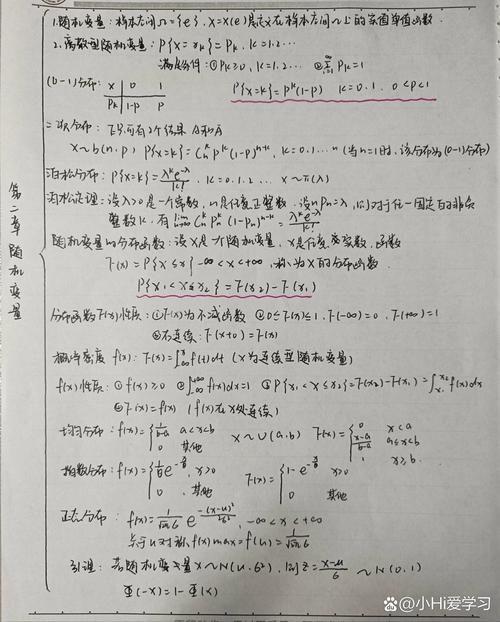 1.随机变量：样本空间Ω={e}，X=X(e)是定义在样本空间Ω上的实值单值函数.
2.离散型随机变量：P{X=xk}=Pk, k=1.2…
满足条件：①Pk≥0, k=1.2… ②∑Pk=1
(0-1)分布： X | 0 1
Pk | 1-p p
P{X=k}=p^k(1-p) k=0.1. 0<p<1
二项分布： 只有2个结果 A和Ā
X~b(n,p) P{X=k}=C_n^k p^k (1-p)^{n-k}, k=0.1…n (当n=1时,该分布为(0-1)分布)
泊松分布：P{X=k}=λ^k e^{-λ}/k!, k=0.1.2… X~π(λ)
泊松定理：设λ>0是一个常数，n是任意正整数，设nPn=λ，则对于任一固定的非负
整数k，有 lim_{n→∞} C_n^k P_n^k (1-Pn)^{n-k} = λ^k e^{-λ}/k!
随机变量的分布函数：设X是一个随机变量，x是任意实数，函数
F(x)=P{X≤x} -∞<x<+∞, 称为X的分布函数.
P{x1<X≤x2}=F(x2)-F(x1)
分布函数F(x)性质：①F(x)为不减函数 ②0≤F(x)≤1, F(-∞)=0, F(+∞)=1
③右连续：F(x+0)=F(x)
概率密度 f(x)：F(x)=∫_{-∞}^{x} f(t)dt (X为连续型随机变量)
f(x)性质：①f(x)≥0 ②∫_{-∞}^{+∞} f(x)dx=1 ③P{x1<X≤x2}=F(x2)-F(x1)=∫_{x1}^{x2} f(x)dx
④F'(x)=f(x) (f(x)在x处连续)
均匀分布：f(x)={1/(b-a) a<x<b; 0 其他 X~U(a,b) F(x)={0 x<a; (x-a)/(b-a) a≤x<b; 1 x≥b.
指数分布：f(x)={1/θ e^{-x/θ}, x>0; 0, 其他 F(x)={1-e^{-x/θ} x>0; 0 其他
正态分布：f(x)=1/(√2π σ) e^{-(x-μ)²/2σ²}, -∞<x<+∞
关于μ对称, f(x)max=f(μ)=1/(√2π σ)
引理：若随机变量X~N(μ,σ²), 则Z=(x-μ)/σ ~N(0,1)
Φ(-x)=1-Φ(x)
第二章随机变量
知乎 @小Hi爱学习